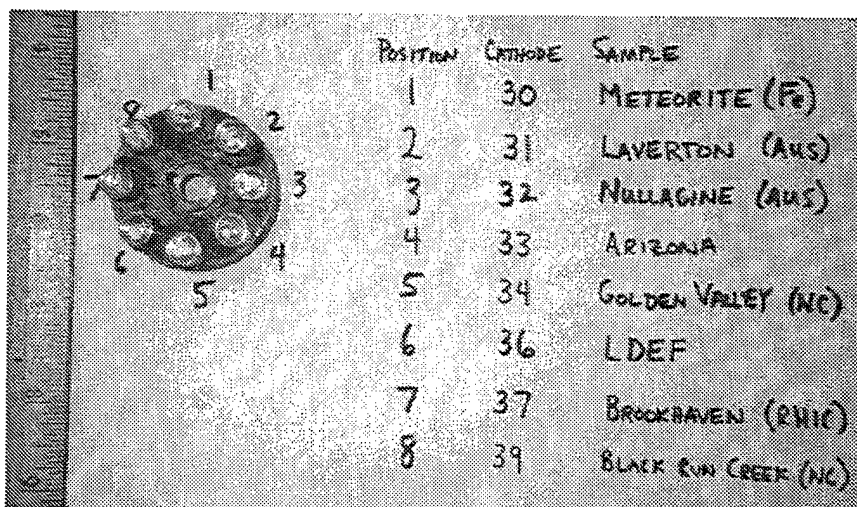 1
2
3
4
5
6
7
8
POSITION CATHODE SAMPLE
1 30 METEORITE (Fe)
2 31 LAVERTON (AUS)
3 32 NULLAGINE (AUS)
4 33 ARIZONA
5 34 GOLDEN VALLEY (NC)
6 36 LDEF
7 37 BROOKHAVEN (RHIC)
8 39 BLACK RUN CREEK (NC)